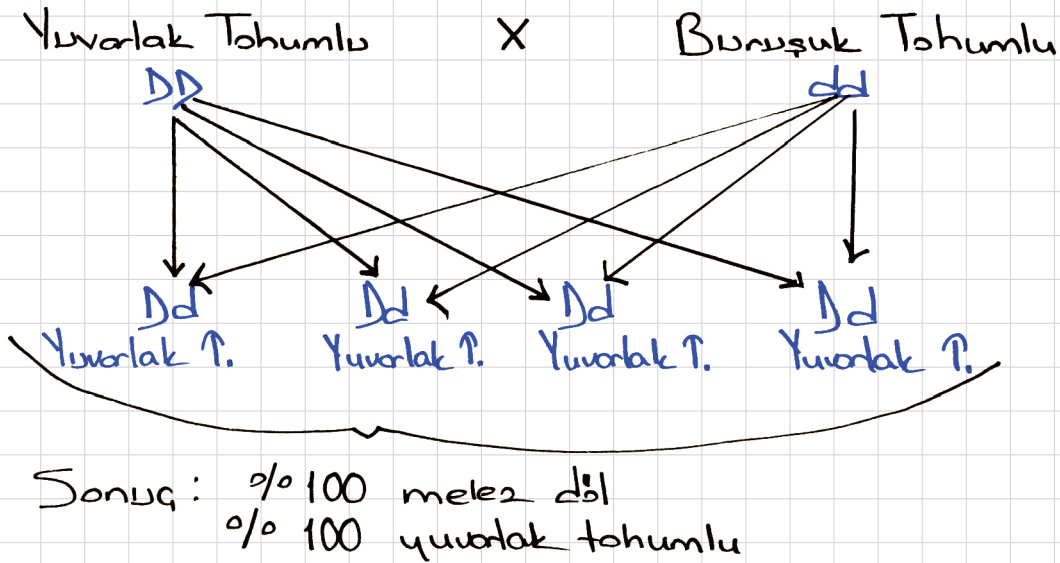 Yuvarlak Tohumlu X Buruşuk Tohumlu
DD dd
Dd Dd Dd Dd
Yuvarlak T. Yuvarlak T. Yuvarlak T. Yuvarlak T.
Sonuç: %100 melez döl
%100 yuvarlak tohumlu